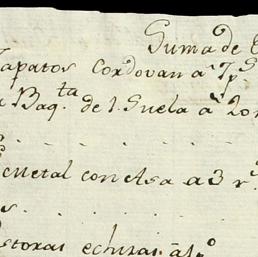 Suma de
Zapatos Cordovan a 7 p.s
Baq.ta de 1. Suela a 20 r
metal con Asa a 3 r.s
echuras a 1 p.o